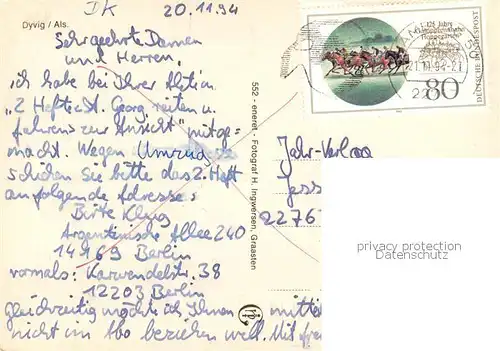 DK 20.11.94
Dyvig / Als.
Sehr geehrte Damen
und Herren,
ich habe bei Ihrer Aktion
"2 Hefte St. Georg, reiten u.
fahren zur Ansicht" mitge=
macht. Wegen Umzug
schicken Sie bitte das 2. Heft
an folgende Adresse:
Birte Klug
Argentinische Allee 240
14169 Berlin
vormals: Karwendelstr. 38
12203 Berlin
gleichzeitig möchte ich Ihnen mitte
nicht im Abo beziehen will. Mit
552 - eneret - Fotograf H. Ingwersen, Graasten
125 Jahre
80
DEUTSCHE BUNDESPOST
21.11.94-21
Jahr-Verlag
Jess
2276
privacy protection
Datenschutz